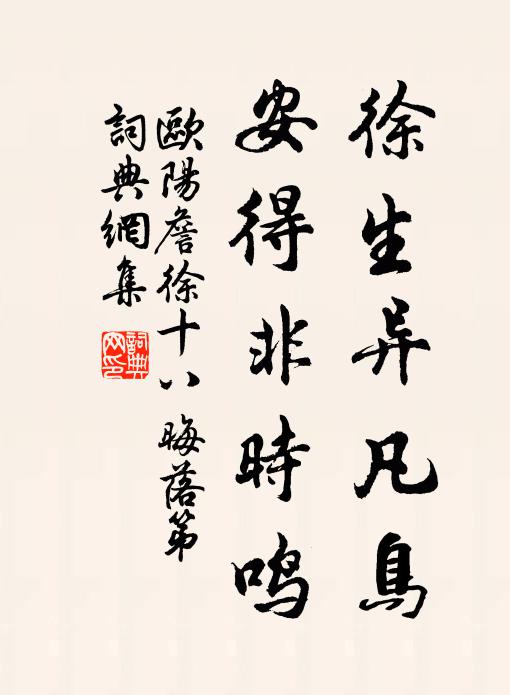 徐生异凡鳥
安得非時鸣
歐陽詹徐十八 晦落第
詞典網集
詞典网印